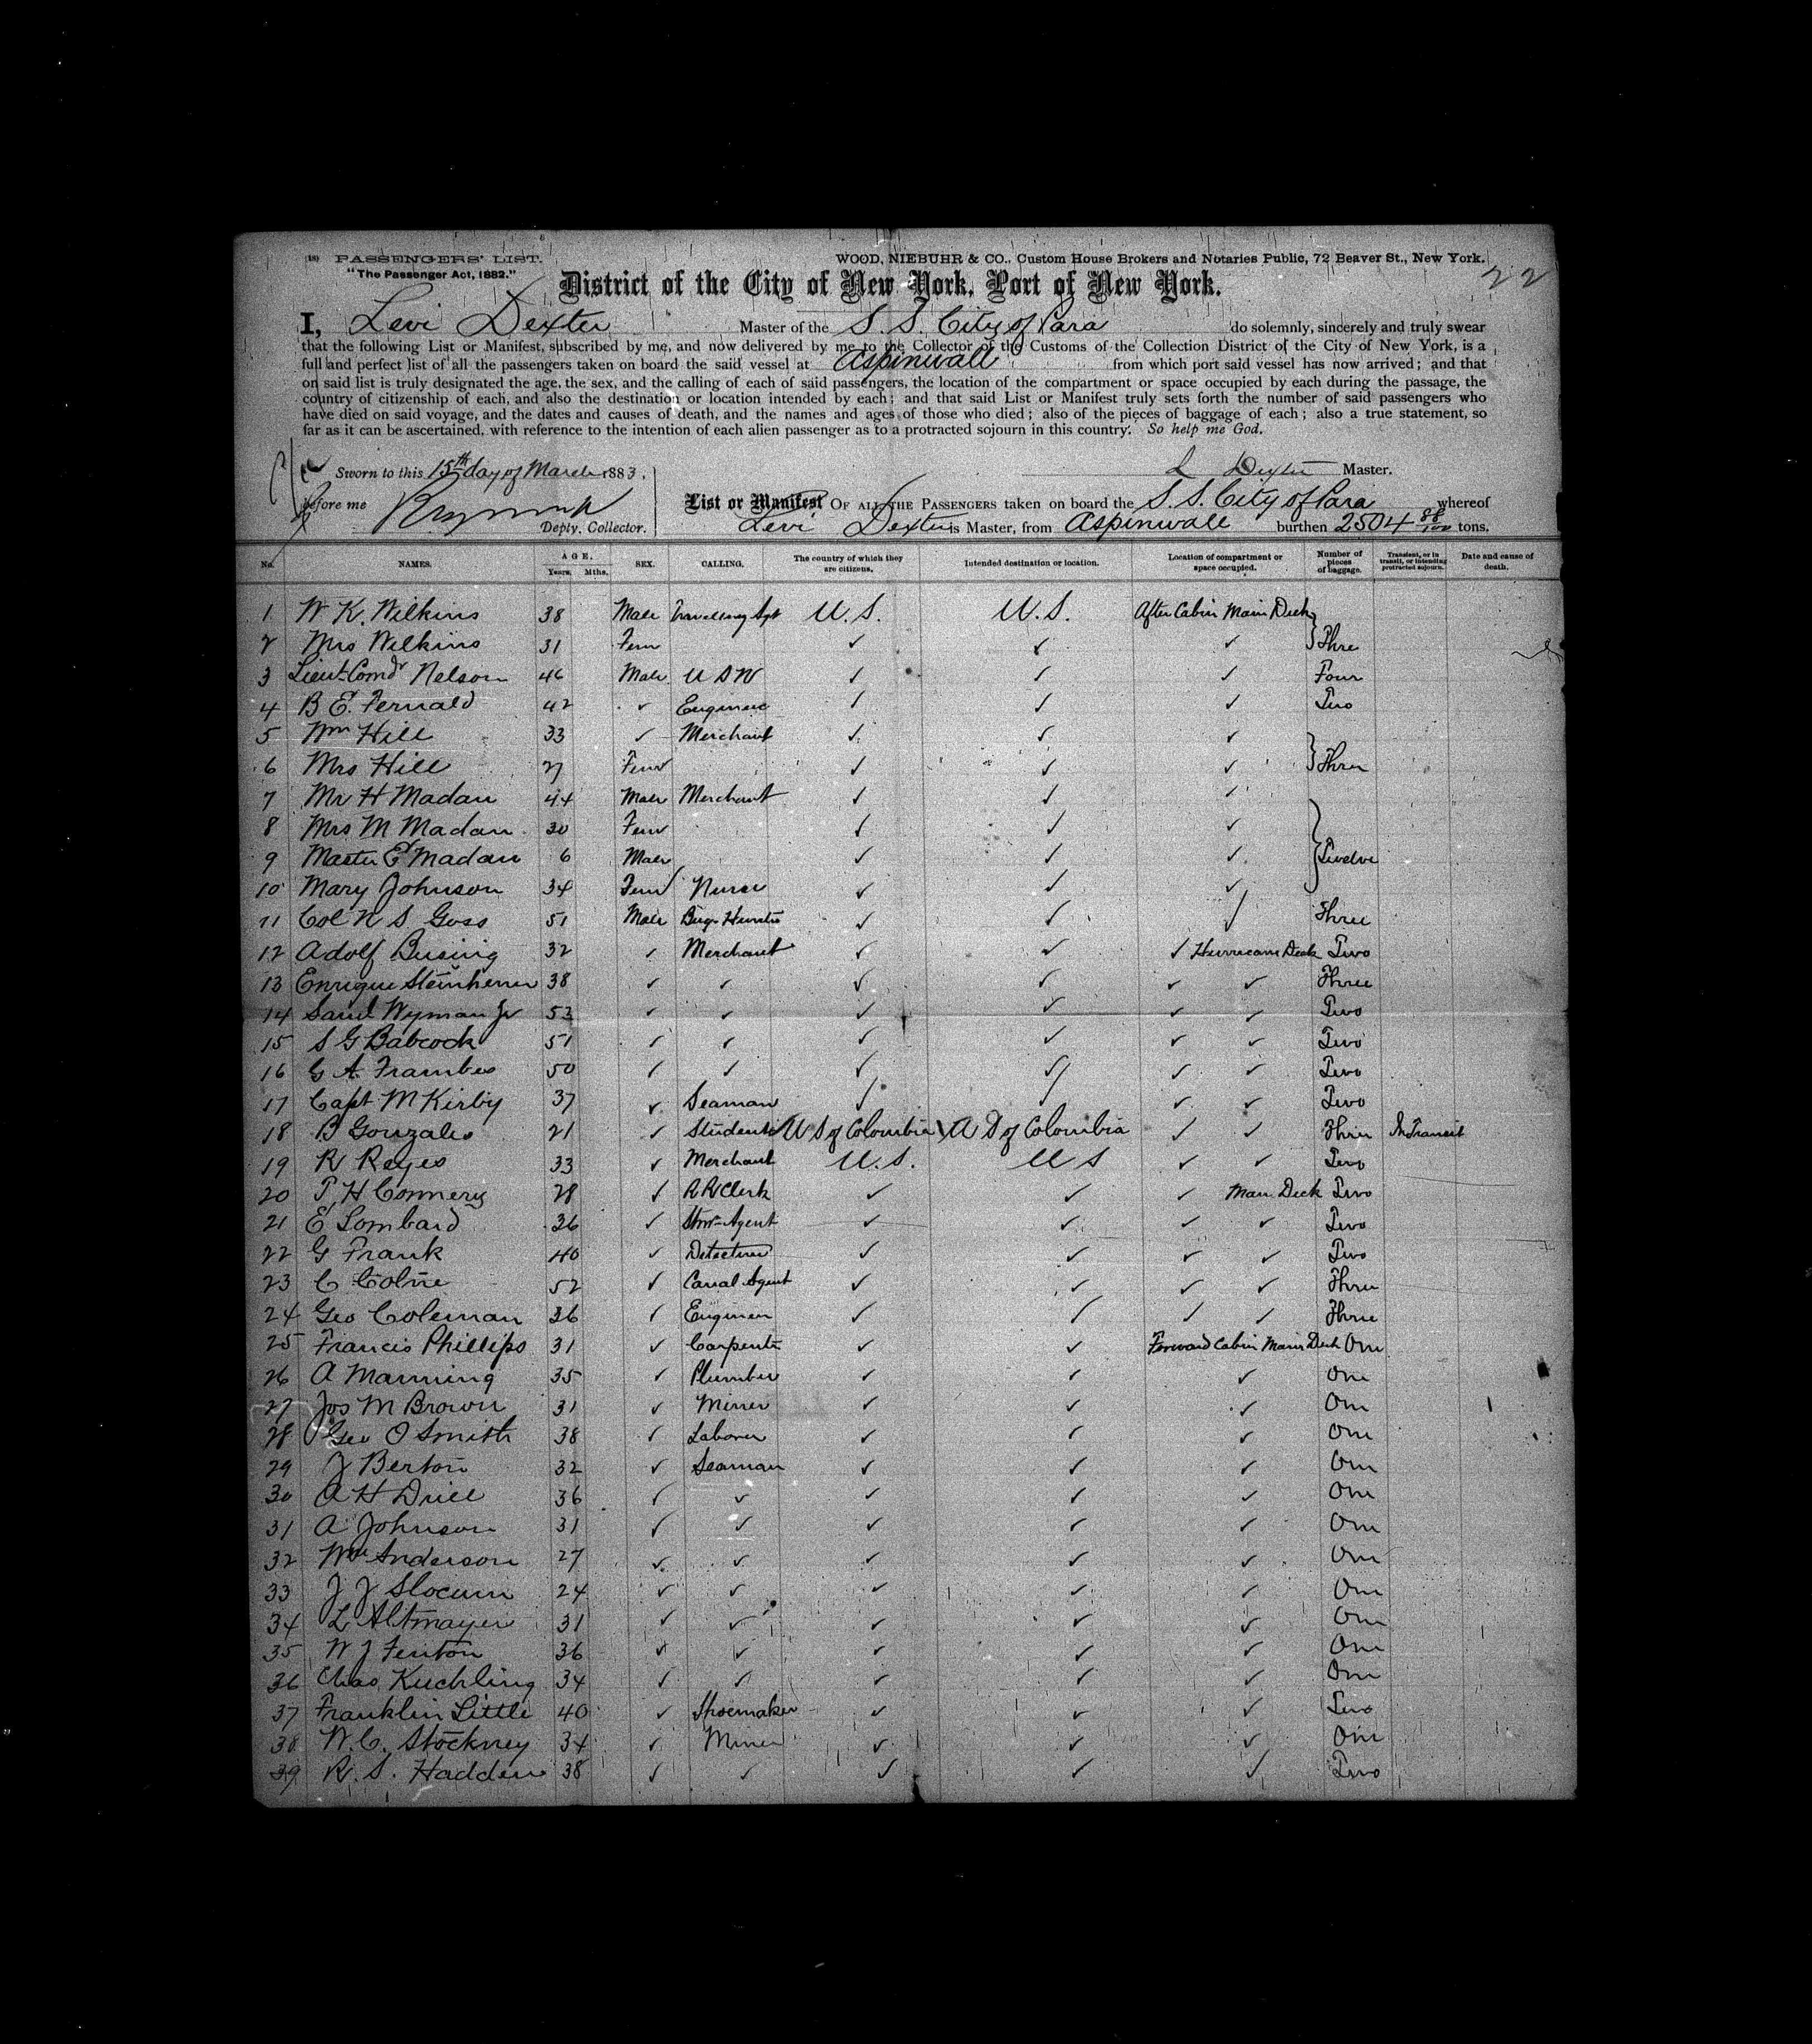 (18) PASSENGERS' LIST.
WOOD, NIEBUHR & CO., Custom House Brokers and Notaries Public, 72 Beaver St., New York.
"The Passenger Act, 1882."
22
District of the City of New York, Port of New York.
I, Levi Dexter Master of the S. S. City of Para do solemnly, sincerely and truly swear
that the following List or Manifest, subscribed by me, and now delivered by me to the Collector of the Customs of the Collection District of the City of New York, is a
full and perfect list of all the passengers taken on board the said vessel at Aspinwall from which port said vessel has now arrived; and that
on said list is truly designated the age, the sex, and the calling of each of said passengers, the location of the compartment or space occupied by each during the passage, the
country of citizenship of each, and also the destination or location intended by each; and that said List or Manifest truly sets forth the number of said passengers who
have died on said voyage, and the dates and causes of death, and the names and ages of those who died; also of the pieces of baggage of each; also a true statement, so
far as it can be ascertained, with reference to the intention of each alien passenger as to a protracted sojourn in this country. So help me God.
Sworn to this 15th day of March 1883.
L Dexter Master.
before me
Deply. Collector.
List or Manifest OF ALL THE PASSENGERS taken on board the S. S. City of Para whereof
Levi Dexter is Master, from Aspinwall burthen 2504 88/100 tons.
No. NAMES. AGE. Years. Mths. SEX. CALLING. The country of which they are citizens. Intended destination or location. Location of compartment or space occupied. Number of pieces of baggage. Transient, or in transit, or intending protracted sojourn. Date and cause of death.
1 W K. Wilkins 38 Male Travelling Agt U. S. U. S. After Cabin Main Deck
2 Mrs Wilkins 31 Fem ✓ ✓ ✓ Thre
3 Lieut-Comdr Nelson 46 Male U S N ✓ ✓ ✓ Four
4 B E. Fernald 42 ✓ Engineer ✓ ✓ ✓ Two
5 Wm Hill 33 ✓ Merchant ✓ ✓ ✓
6 Mrs Hill 27 Fem ✓ ✓ ✓ Three
7 Mr H Madan 44 Male Merchant ✓ ✓ ✓
8 Mrs M Madan 30 Fem ✓ ✓ ✓
9 Master Ed Madan 6 Male ✓ ✓ ✓ Twelve
10 Mary Johnson 34 Fem Nurse ✓ ✓ ✓
11 Col N S Goss 51 Male ✓ ✓ ✓ Three
12 Adolf Busing 32 ✓ Merchant ✓ ✓ ✓ Hurricane Deck Two
13 Enrique Steinhener 38 ✓ ✓ ✓ ✓ ✓ ✓ Three
14 Saml Wyman Jr 53 ✓ ✓ ✓ ✓ ✓ ✓ Two
15 S G Babcock 51 ✓ ✓ ✓ ✓ ✓ ✓ Two
16 G A. Frambes 50 ✓ ✓ ✓ ✓ ✓ ✓ Two
17 Capt M Kirby 37 ✓ Seaman ✓ ✓ ✓ ✓ Two
18 B Gonzales 21 ✓ Student U S of Colombia U S of Colombia ✓ ✓ Three In Transit
19 R Reyes 33 ✓ Merchant U. S. U S ✓ ✓ Two
20 T. H Connery 28 ✓ R R Clerk ✓ ✓ ✓ Main Deck Two
21 E Lombard 36 ✓ Stmr-Agent ✓ ✓ ✓ ✓ Two
22 G Frank 40 ✓ Detective ✓ ✓ ✓ ✓ Two
23 C Colne 52 ✓ Canal Agent ✓ ✓ ✓ ✓ Three
24 Geo Coleman 36 ✓ Engineer ✓ ✓ ✓ ✓ Three
25 Francis Phillips 31 ✓ Carpenter ✓ ✓ Forward Cabin Main Deck One
26 A Manning 35 ✓ Plumber ✓ ✓ ✓ One
27 Jos M Brown 31 ✓ Miner ✓ ✓ ✓ One
28 Geo O Smith 38 ✓ Laborer ✓ ✓ ✓ One
29 J Berton 32 ✓ Seaman ✓ ✓ ✓ One
30 A H Drill 36 ✓ ✓ ✓ ✓ ✓ One
31 A Johnson 31 ✓ ✓ ✓ ✓ ✓ One
32 Wm Anderson 27 ✓ ✓ ✓ ✓ ✓ One
33 J J Slocum 24 ✓ ✓ ✓ ✓ ✓ One
34 L Altmayer 31 ✓ ✓ ✓ ✓ ✓ One
35 W J Fenton 36 ✓ ✓ ✓ ✓ ✓ One
36 Chas Kuchling 34 ✓ ✓ ✓ ✓ ✓ One
37 Franklin Little 40 ✓ Shoemaker ✓ ✓ ✓ Two
38 W. C. Stockney 34 ✓ Miner ✓ ✓ ✓ One
39 R. S. Hadden 38 ✓ ✓ ✓ ✓ ✓ Two